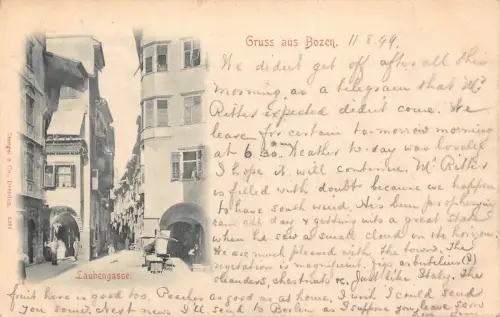 Gruss aus Bozen.
11.8.99
We didn't get off after all this
morning, as a telegram that Mr
Ritter expected didn't come. We
leave for certain to-morrow morning
at 6.30 am. Weather to-day was lovely
I hope it will continue. Mr Ritter
is filled with doubt because we happen
to have south wind. He's been prophesying
rain all day & getting into a great state
when he saw a small cloud on the horizon.
We are much pleased with the town. The
vegetation is magnificent. Figs
oleanders, chestnuts &c. Just like Italy. The
fruit here is good too. Peaches as good as at home. I wish I could send
you some. Next news I'll send to Berlin as I suppose you leave soon
Laubengasse.
Stengel & Co., Dresden